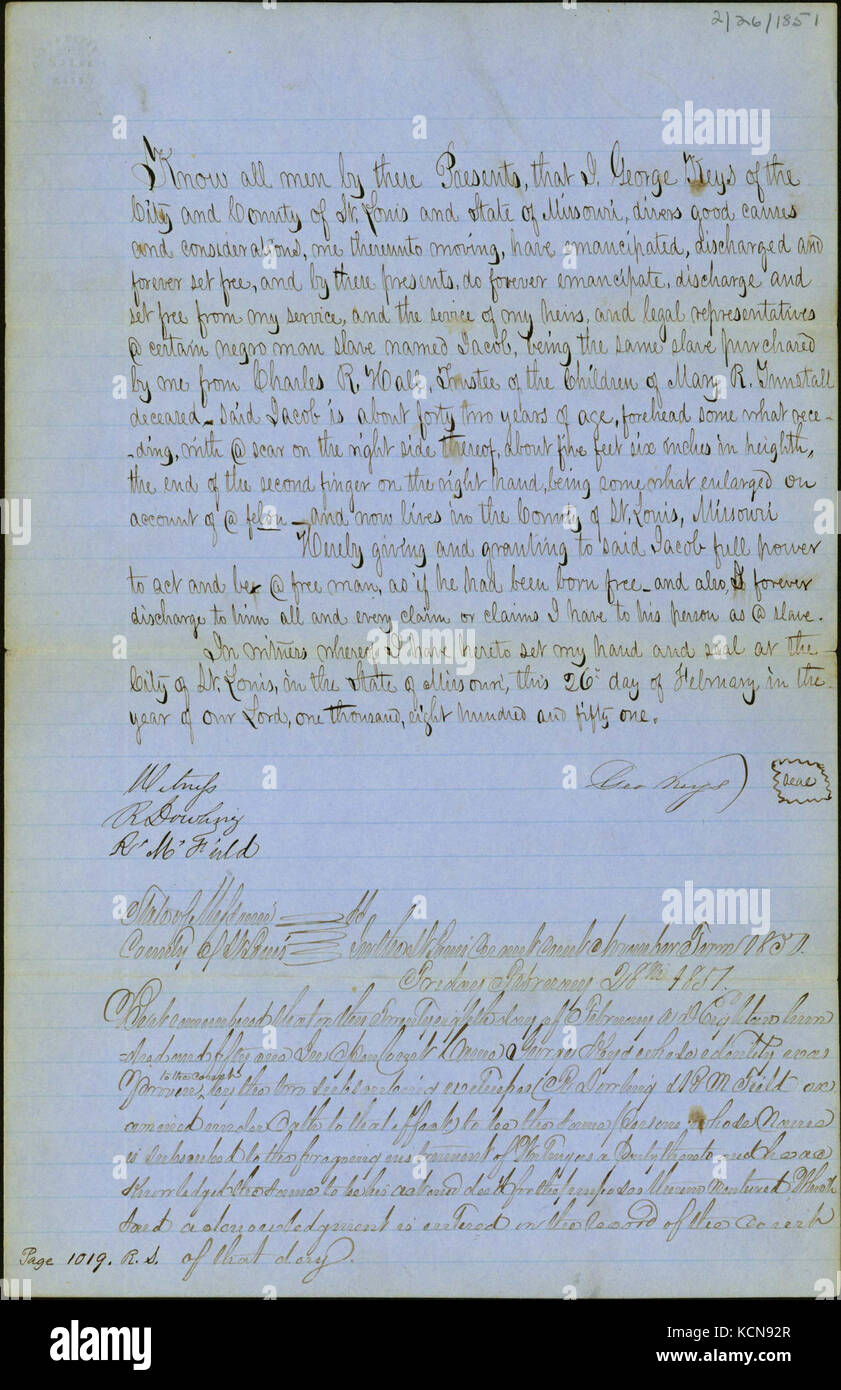 2/26/1851
Know all men by these Presents, that I, George Keys of the
City and County of St. Louis and State of Missouri, divers good causes
and considerations, me thereunto moving, have emancipated, discharged and
forever set free, and by these presents, do forever emancipate, discharge and
set free from my service, and the sevice of my heirs, and legal representatives
@ certain negro man slave named Jacob, being the same slave purchased
by me from Charles R. Hall, Trustee of the Children of Mary R. Tunstall
deceased - said Jacob is about forty two years of age, forehead some what rece-
-ding, with @ scar on the right side thereof, about five feet six inches in heighth,
the end of the second finger on the right hand, being some what enlarged on
account of @ felon - and now lives in the County of St. Louis, Missouri
Hereby giving and granting to said Jacob full power
to act and be @ free man, as if he had been born free - and also, I forever
discharge to him all and every claim or claims I have to his person as @ slave.
In witness whereof, I have hereto set my hand and seal at the
City of St. Louis, in the State of Missouri, this 26th day of February in the
year of our Lord, one thousand, eight hundred and fifty one.
Witness
Geo Keys
seal
R Dowling
R. M. Field
State of Missouri
ss
County of St Louis
In the St Louis Circuit Court November Term 1850.
Friday February 28th 1851.
Be it remembered that on this Twenty eighth day of February A.D. Eighteen hun
-dred and fifty one In open Court came George Keys whose identity was
Proven to the court by the two subscribing witnesses R. Dowling & R M Field ex
amined under oath to that effect to be the same person whose name
is subscribed to the foregoing instrument of writing as a party thereto and he ac
Knowledged the same to be his act and deed for the purposes therein mentioned Which
said acknowledgment is entered on the record of the court
of that day.
Page 1019. R. S.
alamy
a
alamy
Image ID: KCN92R
www.alamy.com